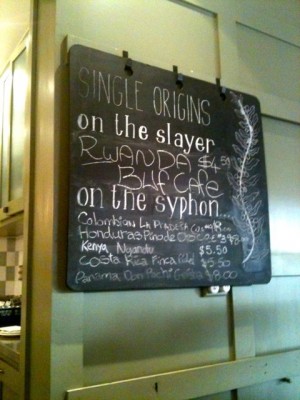 SINGLE ORIGINS
on the slayer
RWANDA $4.50
BUF Cafe
on the syphon...
Colombian La
Honduras Pino de $8.00
Kenya Ngandu $5.50
Costa Rica Finca $5.50
Panama Don Pachi Geisha $8.00